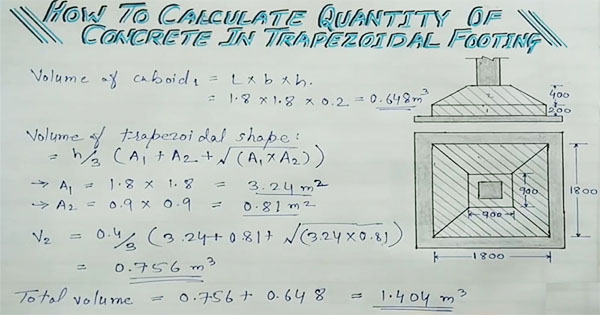 HOW TO CALCULATE QUANTITY OF
CONCRETE IN TRAPEZOIDAL FOOTING
Volume of cuboid1 = L x b x h.
= 1.8 x 1.8 x 0.2 = 0.648 m³
Volume of trapezoidal shape:
= h/3 (A1 + A2 + √(A1 x A2))
→ A1 = 1.8 x 1.8 = 3.24 m²
→ A2 = 0.9 x 0.9 = 0.81 m²
V2 = 0.4/3 (3.24 + 0.81 + √(3.24 x 0.81)
= 0.756 m³
Total volume = 0.756 + 0.648 = 1.404 m³
2
1
400
200
900
1800
900
1800